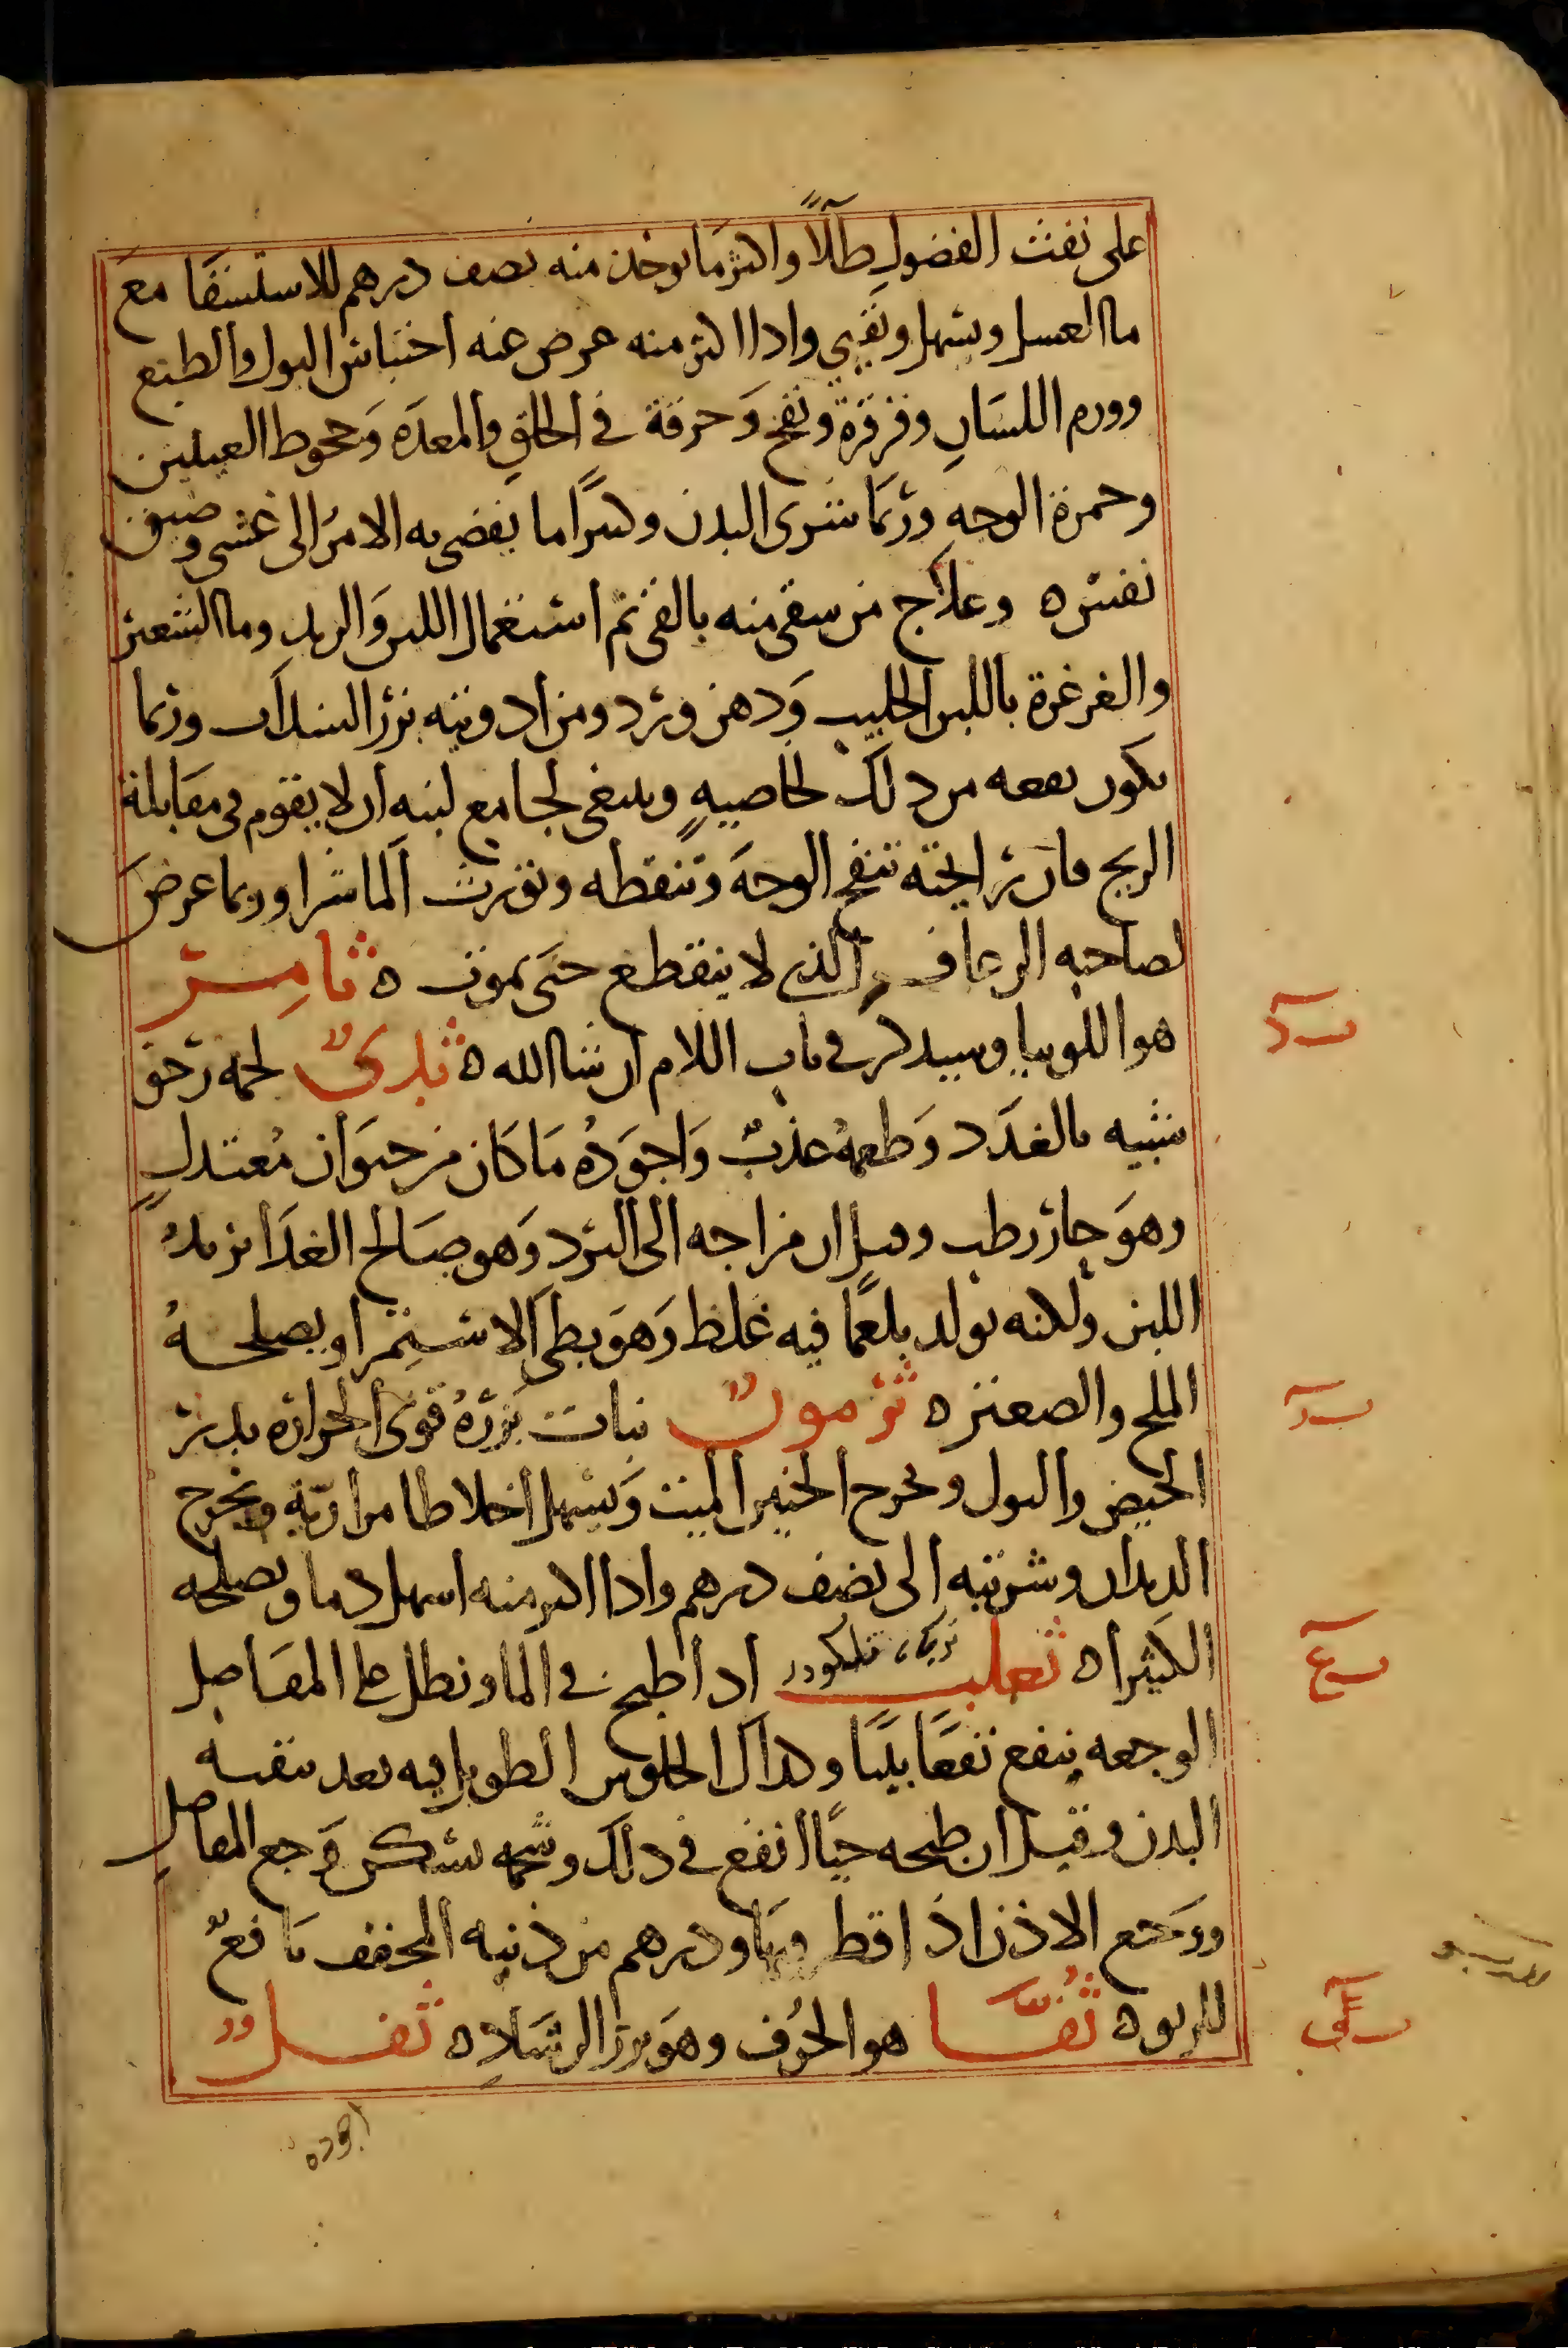 على نفث الفضول طلاً واكثر ما يوخذ منه نصف درهم للاستسقا مع
ما العسل ويسهل ويقيى واذا اكثر منه عرض عنه احتباس البول والطبع
وورم اللسان وقرقرة ونفخ وحرقة في الحلق والمعدة وجحوظ العينين
وحمرة الوجه وربما شرى البدن وكثيرًا ما يفضى به الامر الى غشى وضيق
نفس ه وعلاج من سقى منه بالقى ثم استعمال اللبن والزبد وما الشعير
والغرغرة باللبن الحليب ودهن ورد ومن ادويته بزر السذاب وربما
يكون نفعه من ذلك لخاصيه وينبغى لجامع لبنه ان لا يقوم فى مقابلة
الريح فان رايحته تنفخ الوجه وتنفطه وتورث الماشرا وربما عرض
لصاحبه الرعاف الذى لا ينقطع حتى يموت ه ثامر
هو اللوبيا وسيذكر في باب اللام ان شا الله ه ثدى لحمه رخو
شبيه بالغدد وطعمه عذب واجوده ما كان من حيوان معتدل
وهو حار رطب وقيل ان مزاجه الى البرد وهو صالح الغذا يزيد
اللبن ولكنه يولد بلغما فيه غلظ وهو بطى الاستمرا ويصلحه
الملح والصعتر ه ثرمون نبات بزره قوى الحراره يدر
الحيض والبول ويخرج الجنين الميت ويسهل اخلاطا مرارية ويخرج
الديدان وشربته الى نصف درهم واذا اكثر منه اسهل دما ويصلحه
الكثيرا ه ثعلب اذا طبخ في الما ونطل على المفاصل
الوجعه ينفع نفعا بينا وكذلك الجلوس الطويل فيه بعد تنقية
البدن وقيل ان طبخه حيًا انفع في ذلك وشحمه يسكن وجع المفاصل
ووجع الاذن اذا قطر فيها ودرهم من ذنبه المجفف نافع
للربو ه ثفا هو الحرف وهو بزر الرشاد ه ثفل
اجوده